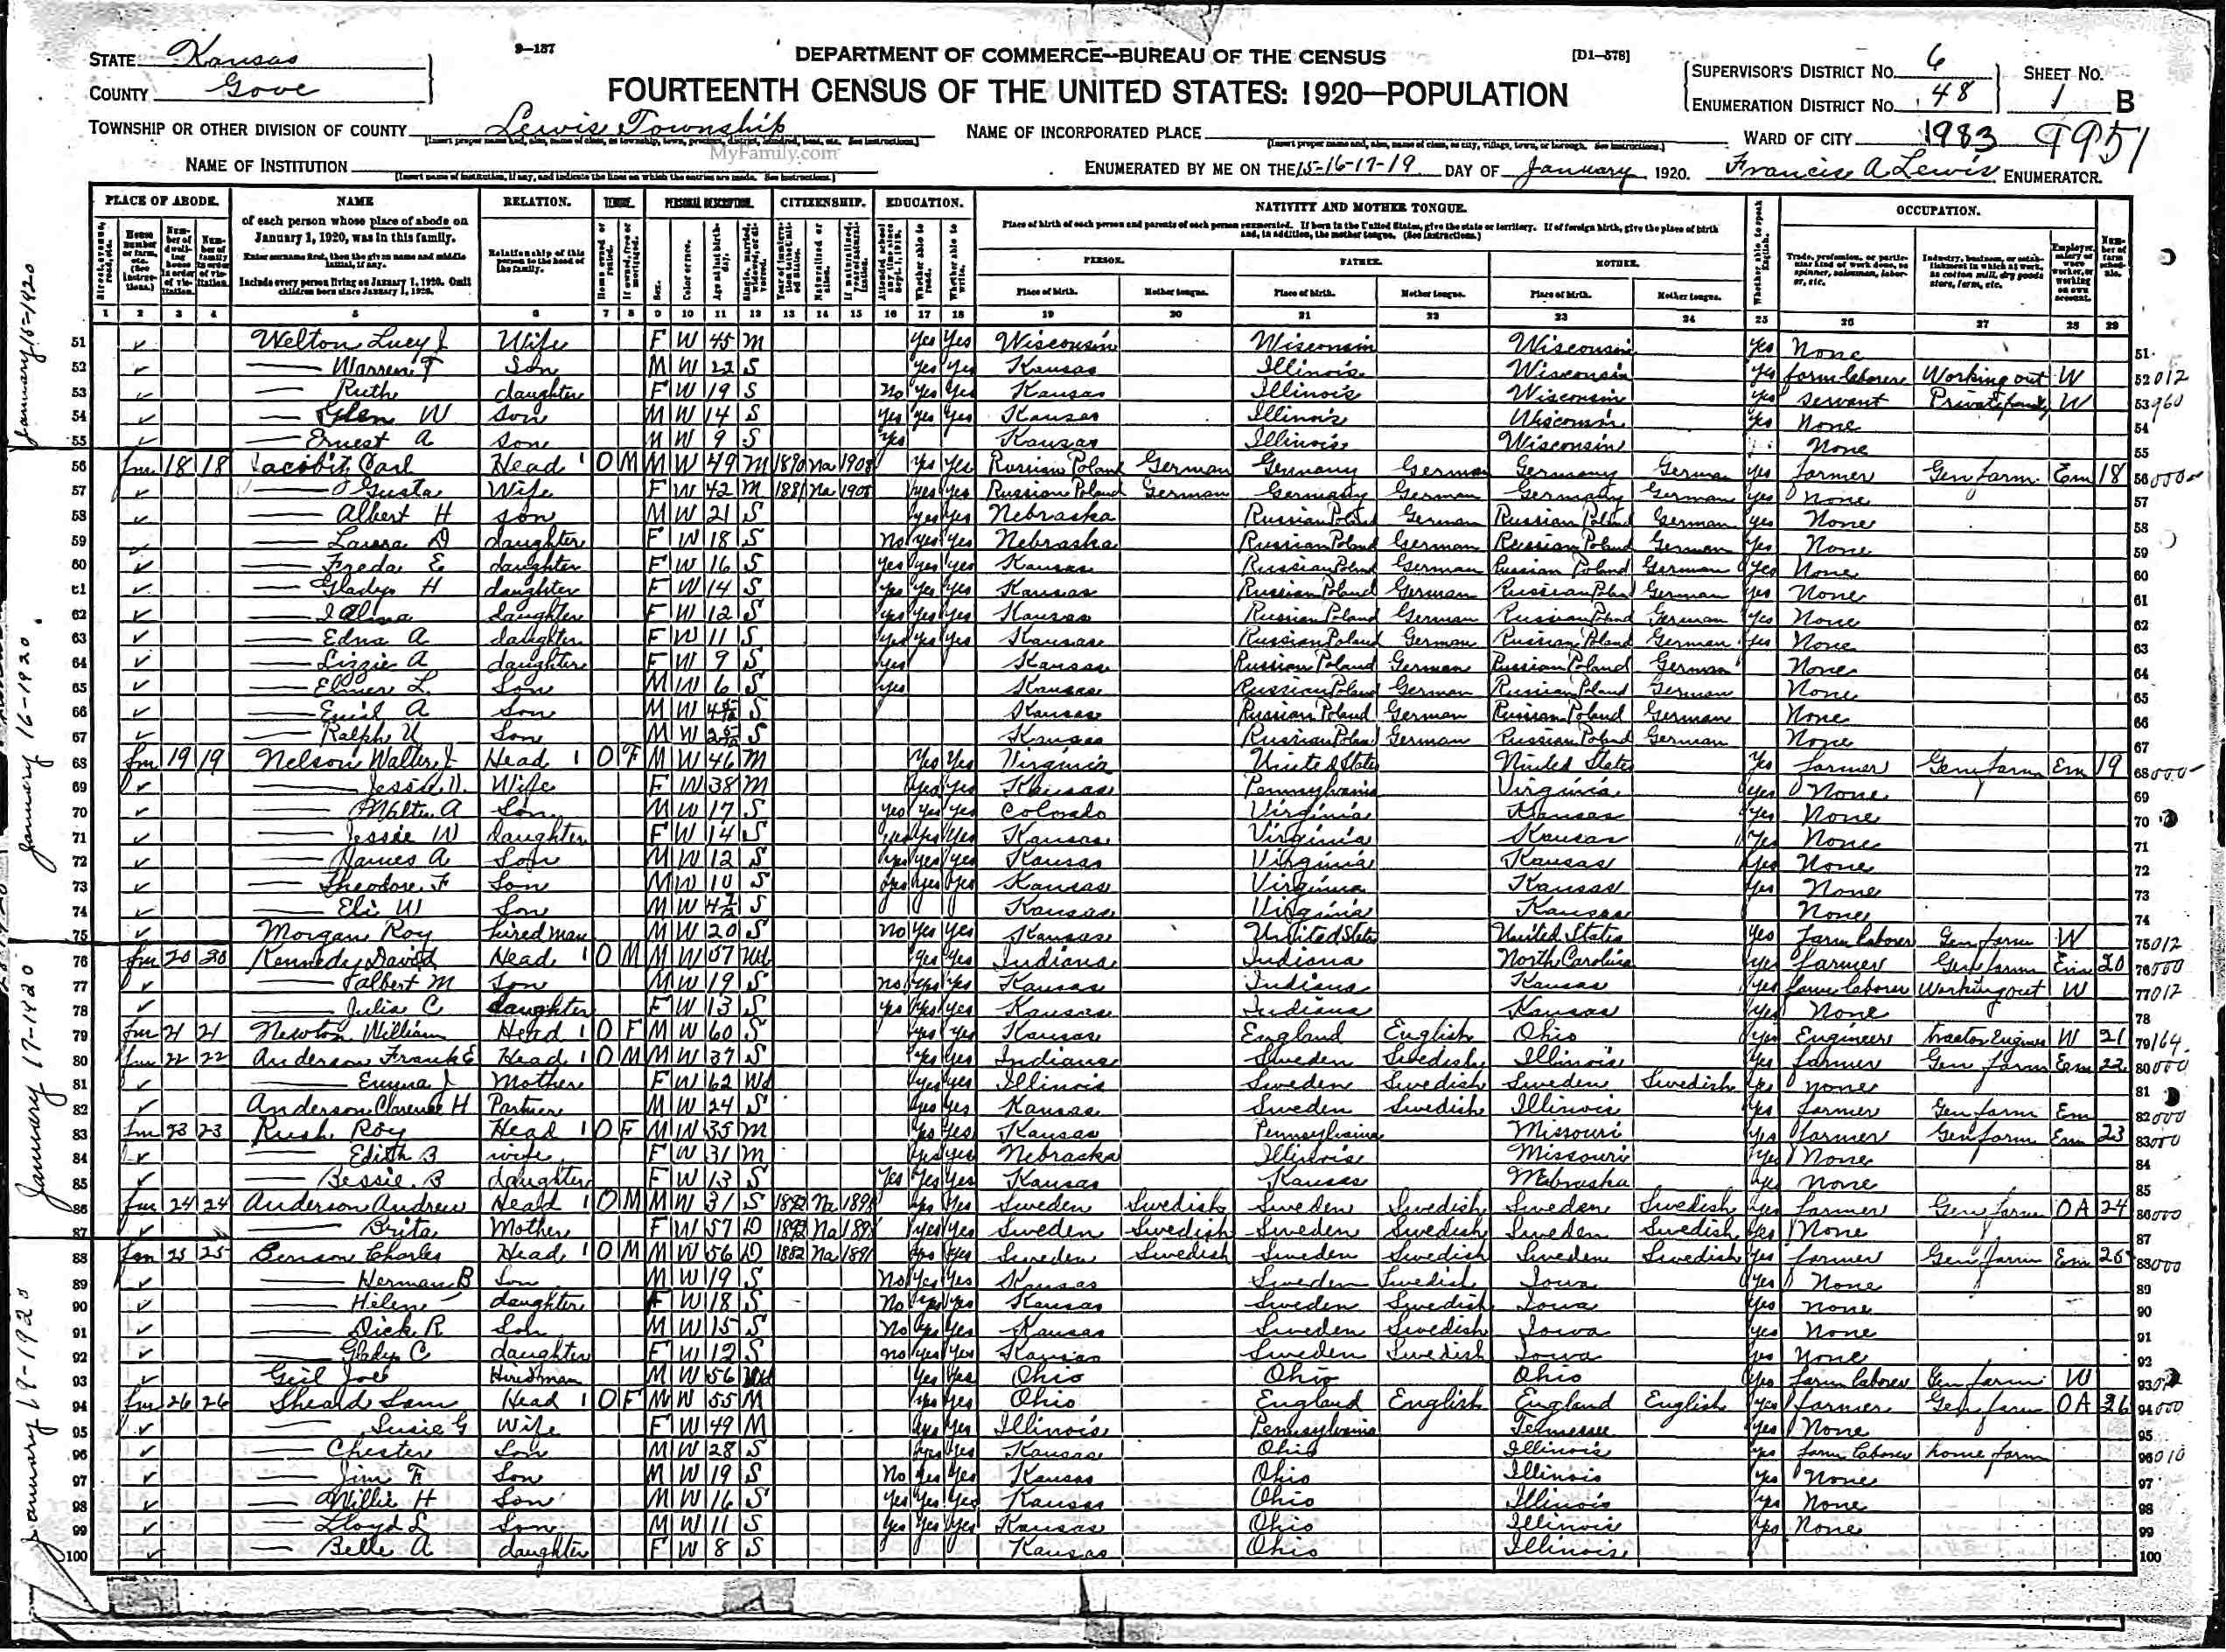 STATE Kansas
COUNTY Gove
9-137
DEPARTMENT OF COMMERCE—BUREAU OF THE CENSUS
[D1-578]
FOURTEENTH CENSUS OF THE UNITED STATES: 1920—POPULATION
SUPERVISOR'S DISTRICT NO. 6
ENUMERATION DISTRICT NO. 48
SHEET NO. 1 B
TOWNSHIP OR OTHER DIVISION OF COUNTY Lewis Township
MyFamily.com
NAME OF INCORPORATED PLACE
WARD OF CITY 1983 9951
NAME OF INSTITUTION
ENUMERATED BY ME ON THE 15-16-17-19 DAY OF January, 1920. Francis A Lewis ENUMERATOR.
PLACE OF ABODE. NAME RELATION. TENURE. PERSONAL DESCRIPTION. CITIZENSHIP. EDUCATION. NATIVITY AND MOTHER TONGUE. OCCUPATION.
of each person whose place of abode on January 1, 1920, was in this family.
Enter surname first, then the given name and middle initial, if any.
Include every person living on January 1, 1920. Omit children born since January 1, 1920.
Relationship of this person to the head of the family.
PERSON. FATHER. MOTHER.
Place of birth. Mother tongue. Place of birth. Mother tongue. Place of birth. Mother tongue.
1 2 3 4 5 6 7 8 9 10 11 12 13 14 15 16 17 18 19 20 21 22 23 24 25 26 27 28 29
51 Welton Lucy J Wife F W 45 M Yes Yes Wisconsin Wisconsin Wisconsin Yes None 51
52 — Warren T Son M W 22 S Yes Yes Kansas Illinois Wisconsin Yes farm laborer Working out W 52 012
53 — Ruth daughter F W 19 S No Yes Yes Kansas Illinois Wisconsin Yes servant Private family W 53 960
54 — Glen W son M W 14 S Yes Yes Yes Kansas Illinois Wisconsin Yes None 54
55 — Ernest A son M W 9 S Yes Kansas Illinois Wisconsin None 55
56 fm 18 18 Jacobitz Carl Head 1 O M M W 49 M 1890 Na 1908 Yes Yes Russian Poland German Germany German Germany German yes farmer Gen farm Em 18 56 000
57 — Gusta Wife F W 42 M 1881 Na 1908 yes yes Russian Poland German Germany German Germany German yes None 57
58 — Albert H son M W 21 S yes yes Nebraska Russian Poland German Russian Poland German yes None 58
59 — Laura D daughter F W 18 S No yes yes Nebraska Russian Poland German Russian Poland German Yes None 59
60 — Freda E daughter F W 16 S Yes Yes Yes Kansas Russian Poland German Russian Poland German Yes None 60
61 — Gladys H daughter F W 14 S Yes Yes Yes Kansas Russian Poland German Russian Poland German Yes None 61
62 — daughter F W 12 S yes yes yes Kansas Russian Poland German Russian Poland German Yes None 62
63 — Edna A daughter F W 11 S yes yes yes Kansas Russian Poland German Russian Poland German Yes None 63
64 — Lizzie A daughter F W 9 S Yes Kansas Russian Poland German Russian Poland German None 64
65 — Elmer L. Son M W 6 S Yes Kansas Russian Poland German Russian Poland German None 65
66 — Emil A Son M W S Kansas Russian Poland German Russian Poland German None 66
67 — Ralph Son M W S Kansas Russian Poland German Russian Poland German None 67
68 fm 19 19 Nelson Walter J Head 1 O F M W 46 M Yes Yes Virginia United States United States Yes farmer Gen farm Em 19 68 000
69 — Jessie Wife F W 38 M Yes Yes Kansas Pennsylvania Virginia Yes None 69
70 — Walter A Son M W 17 S yes yes yes Colorado Virginia Kansas Yes None 70
71 — Jessie W daughter F W 14 S yes yes yes Kansas Virginia Kansas Yes None 71
72 — James A Son M W 12 S yes yes yes Kansas Virginia Kansas Yes None 72
73 — Theodore F Son M W 10 S yes yes yes Kansas Virginia Kansas Yes None 73
74 — Eli W Son M W S Kansas Virginia Kansas None 74
75 Morgan Roy hired man M W 20 S no Yes yes Kansas United States United States Yes Farm laborer Gen farm W 75 012
76 fm 20 20 Kennedy David Head 1 O M M W 57 Wd Yes Yes Indiana Indiana North Carolina yes farmer Gen farm Em 20 76 000
77 — Talbert M Son M W 19 S no yes yes Kansas Indiana Kansas Yes farm laborer Working out W 77 012
78 — Julia C daughter F W 13 S yes yes yes Kansas Indiana Kansas Yes None 78
79 fm 21 21 Newton William Head 1 O F M W 60 S Yes Yes Kansas England English Ohio Yes Engineer tractor Engine W 21 79 164
80 fm 22 22 Anderson Frank E Head 1 O M M W 37 S Yes Yes Indiana Sweden Swedish Illinois Yes farmer Gen farm Em 22 80 000
81 — Emma J Mother F W 62 Wd yes yes Illinois Sweden Swedish Sweden Swedish Yes none 81
82 Anderson Clarence H Partner M W 24 S Yes Yes Kansas Sweden Swedish Illinois Yes farmer Gen farm Em 82 000
83 fm 23 23 Rush Roy Head 1 O F M W 35 M Yes Yes Kansas Pennsylvania Missouri Yes farmer Gen farm Em 23 83 000
84 — Edith B wife F W 31 M yes yes Nebraska Illinois Missouri Yes None 84
85 — Bessie B daughter F W 13 S Yes Yes Yes Kansas Kansas Nebraska Yes None 85
86 fm 24 24 Anderson Andrew Head 1 O M M W 31 S 1892 Na 1898 Yes Yes Sweden Swedish Sweden Swedish Sweden Swedish Yes farmer Gen farm OA 24 86 000
87 — Brita Mother F W 57 D 1892 Na 1898 yes yes Sweden Swedish Sweden Swedish Sweden Swedish Yes None 87
88 fm 25 25 Benson Charles Head 1 O M M W 56 D 1882 Na 1891 Yes Yes Sweden Swedish Sweden Swedish Sweden Swedish Yes farmer Gen farm Em 25 88 000
89 — Herman B Son M W 19 S No Yes Yes Kansas Sweden Swedish Iowa Yes None 89
90 — Helen daughter F W 18 S No yes yes Kansas Sweden Swedish Iowa Yes None 90
91 — Dick R Son M W 15 S No Yes Yes Kansas Sweden Swedish Iowa yes None 91
92 — Glady C daughter F W 12 S no yes yes Kansas Sweden Swedish Iowa Yes None 92
93 Joe Hired man M W 56 Wd Yes Yes Ohio Ohio Ohio Yes farm laborer Gen farm W 93
94 fm 26 26 Sheard Sam Head 1 O F M W 55 M Yes Yes Ohio England English England English Yes farmer Gen farm OA 26 94 000
95 — Susie G Wife F W 49 M Yes Yes Illinois Pennsylvania Tennessee Yes None 95
96 — Chester Son M W 28 S Yes Yes Kansas Ohio Illinois Yes farm laborer home farm 96 010
97 — Jim F Son M W 19 S No Yes Yes Kansas Ohio Illinois Yes None 97
98 — Willie H Son M W 16 S Yes Yes Yes Kansas Ohio Illinois yes None 98
99 — Lloyd L Son M W 11 S Yes Yes Yes Kansas Ohio Illinois Yes None 99
100 — Belle A daughter F W 8 S Kansas Ohio Illinois 100
January 16-1920
January 17-1920